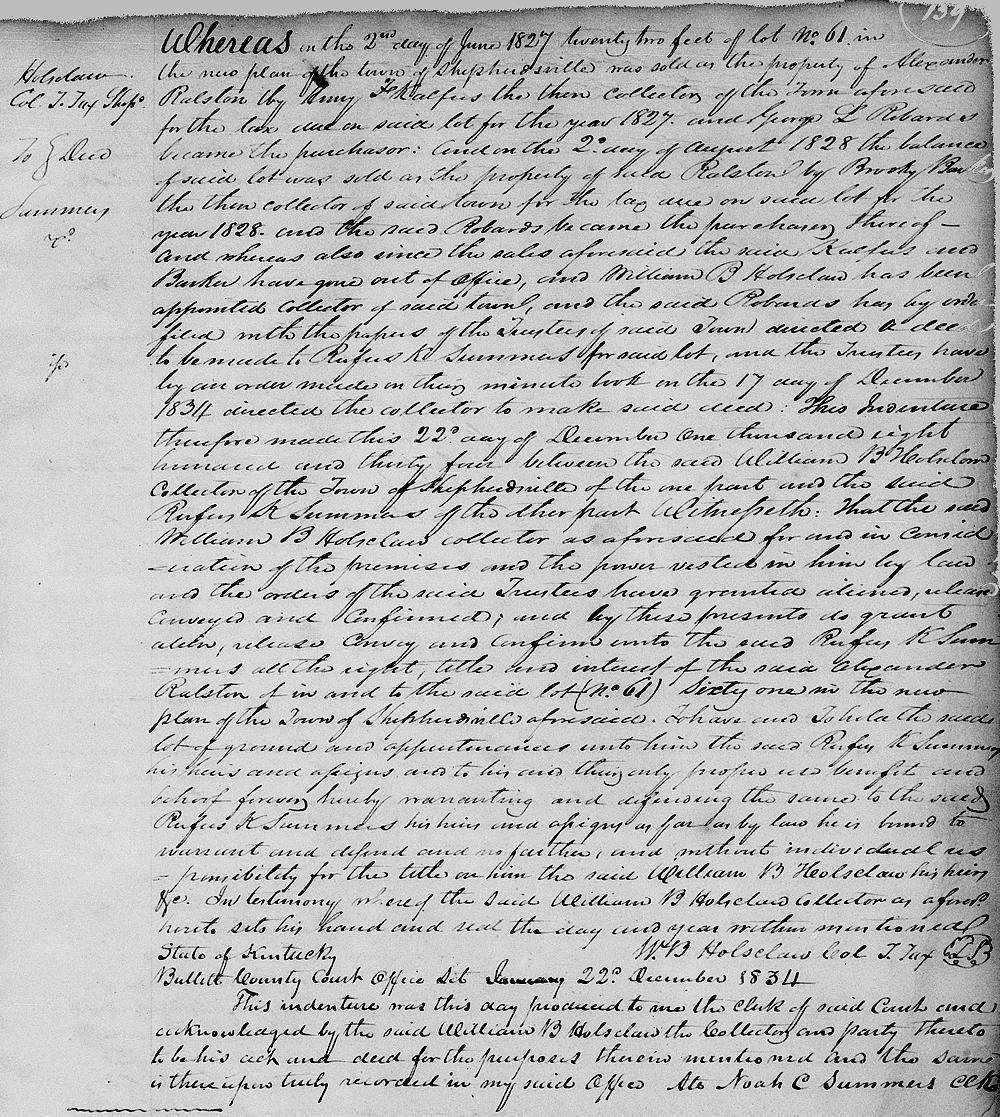 134
Whereas on the 2nd day of June 1827 twenty two feet of lot No 61 in
Holsclaw
the new plan of the town of Shepherdsville was sold as the property of Alexander
Col T. Tax Shepe
Ralston by Henry F Kalfus the then collector of the Town aforesaid
for the tax due on said lot for the year 1827. and George L Robards
To } Deed
became the purchasor: and on the 2d day of August 1828 the balance
of said lot was sold as the property of said Ralston by Brooky Barker
Summers
the then collector of said town for the tax due on said lot for the
year 1828. and the said Robards became the purchaser thereof-
and whereas also since the sales aforesaid the said Kalfus and
Barker have gone out of office, and William B Holsclaw has been
appointed collector of said town, and the said Robards has by order
filed with the papers of the Trustees of said Town directed a deed
to be made to Rufus K Summers for said lot, and the Trustees have
by an order made on their minute book on the 17 day of December
1834 directed the collector to make said deed: This Indenture
therefore made this 22d day of December one thousand eight
hundred and thirty four between the said William B Holsclaw
Collector of the Town of Shepherdsville of the one part and the said
Rufus K Summers of the other part Witnesseth: That the said
William B Holsclaw collector as aforesaid for and in consid
=eration of the premises and the power vested in him by law
and the orders of the said Trustees have granted aliened, release
Conveyed and Confirmed; and by these presents do grant
alien, release Convey and Confirm unto the said Rufus K Sum
=mers all the right, title and interest of the said Alexander
Ralston of in and to the said lot (No 61) Sixty one in the new
plan of the Town of Shepherdsville aforesaid. To have and To hold the said
lot of ground and appurtenances unto him the said Rufus K Summers
his heirs and assigns and to his and their only proper use benefit and
behoof forever hereby warranting and defending the same to the said
Rufus K Summers his heirs and assigns as far as by law he is bound to
warrant and defend and no farther, and without individual res
=ponsibility for the title on him the said William B Holsclaw his heirs
&c. In testimony whereof the said William B Holsclaw Collector as afored
hereto sets his hand and seal the day and year within mentioned
State of Kentucky
W. B Holsclaw Col T. Tax
Bullitt County Court Office Sct January 22d December 1834
This indenture was this day produced to me the Clerk of said Court and
acknowledged by the said William B Holsclaw the Collector and party thereto
to be his act and deed for the purposes therein mentioned and the same
is thereupon truly recorded in my said office Atte Noah C Summers Clk